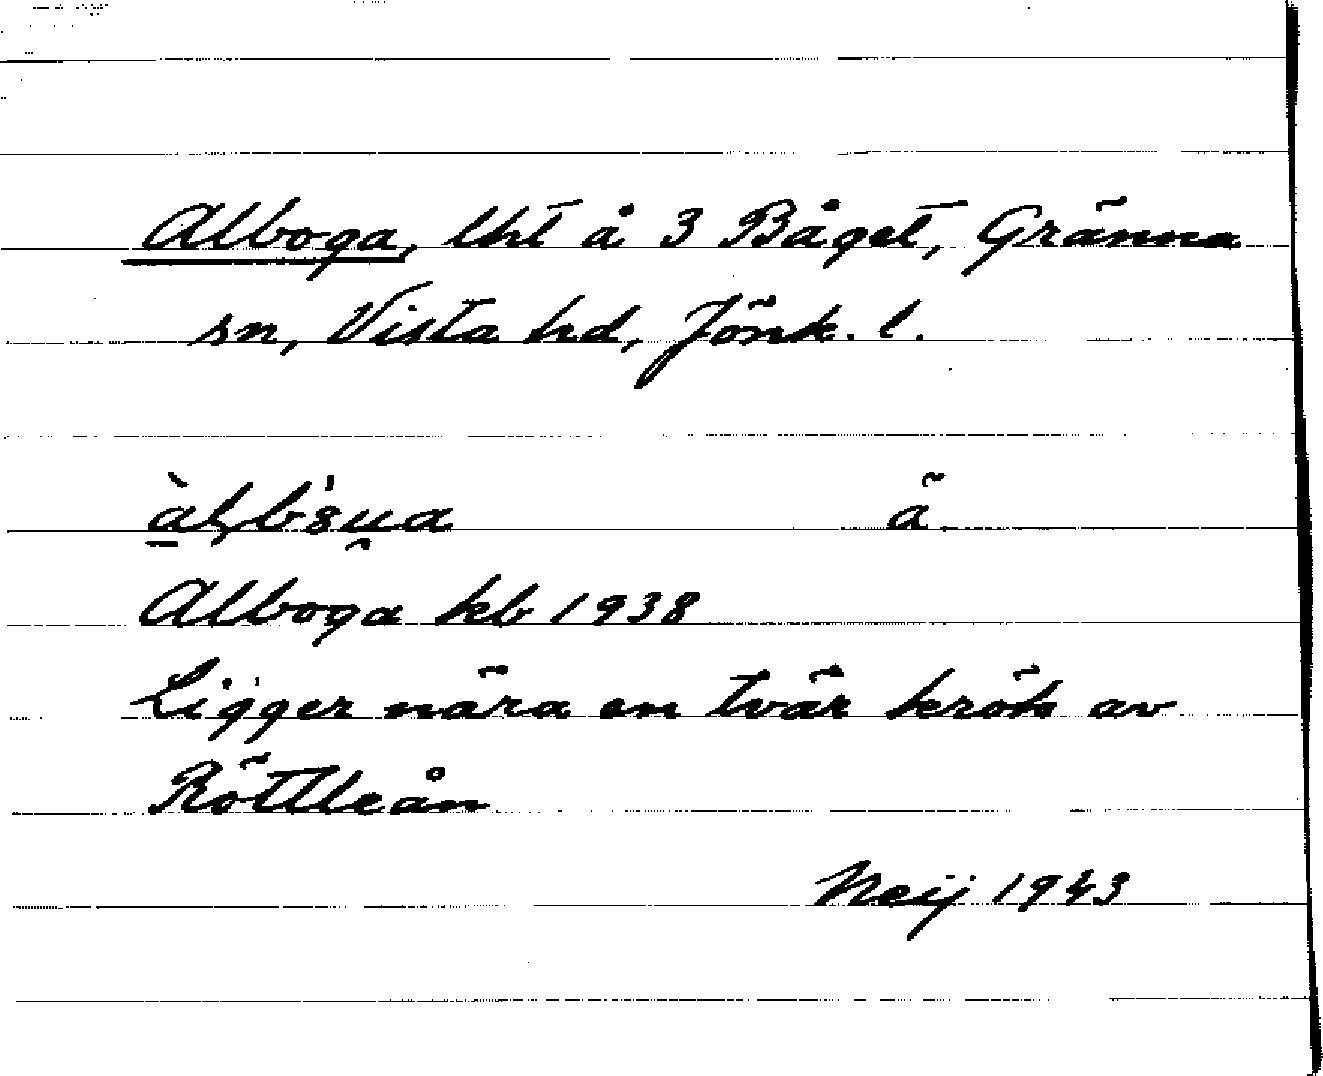 Alboga, lht å 3 Båget, Gränna
sn, Vista hd, Jönk. l.
ä
Alboga kb 1938
Ligger nära en tvär krök av
Röttleån
Neij 1943